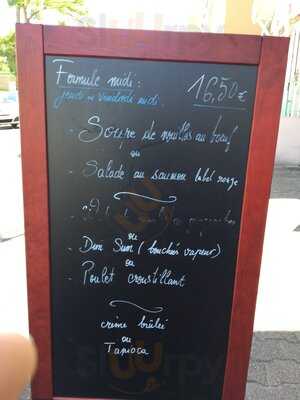 Formule midi :
16,50 €
jeudi et vendredi midi.
- Soupe de nouilles au boeuf
ou
- Salade au saumon label rouge
ou
- Dim Sum (bouchées vapeur)
ou
- Poulet croustillant
crème brûlée
ou
Tapioca